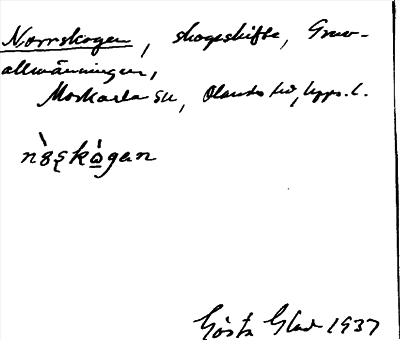 Norrskogen, skogsskifte, Grav-
allmänningen,
Morkarla sn, Olands hd, Upps. l.
nòʂkògan
Gösta Glad 1937